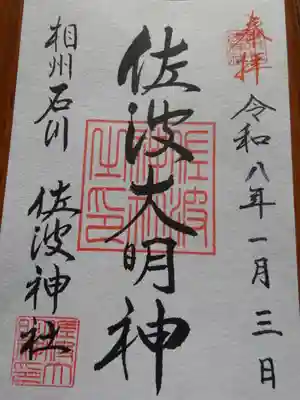 奉拝
令和八年一月三日
佐波大明神
相州石川
佐波神社